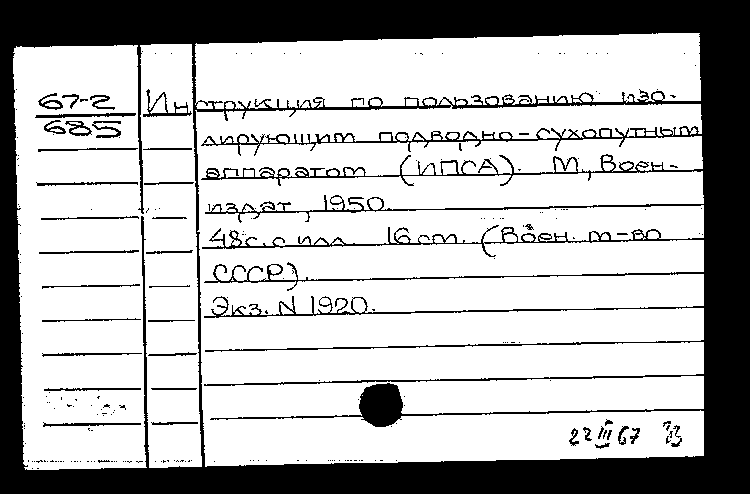 67-2
685
Инструкция по пользованию изо-
лирующим подводно-сухопутным
аппаратом (ИПСА). М., Воен-
издат, 1950.
48 с. с илл. 16 cm. (Воен. т-во
СССР).
Экз. N 1920.
22 III 67